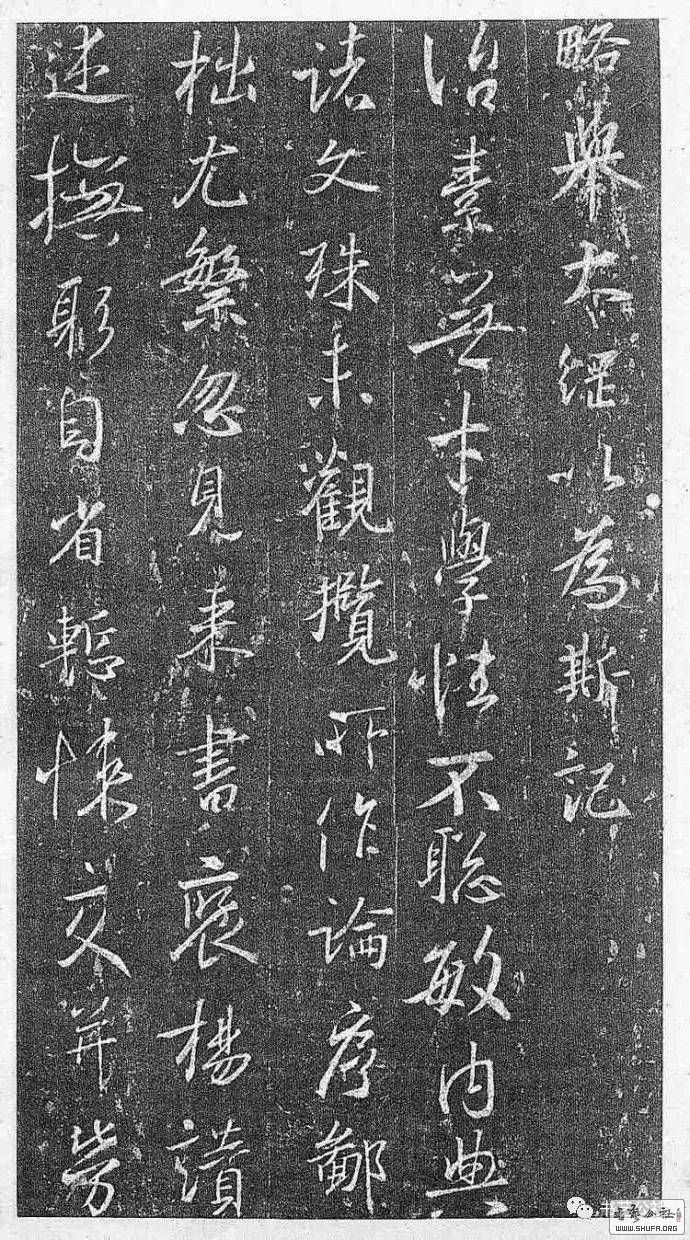 略舉大綱以為斯記
治素無才學性不聰敏內典
諸文殊未觀攬所作論序鄙
拙尤繁忽見來書褒揚讚
述撫躬自省慙悚交并勞
WWW.SHUFA.ORG